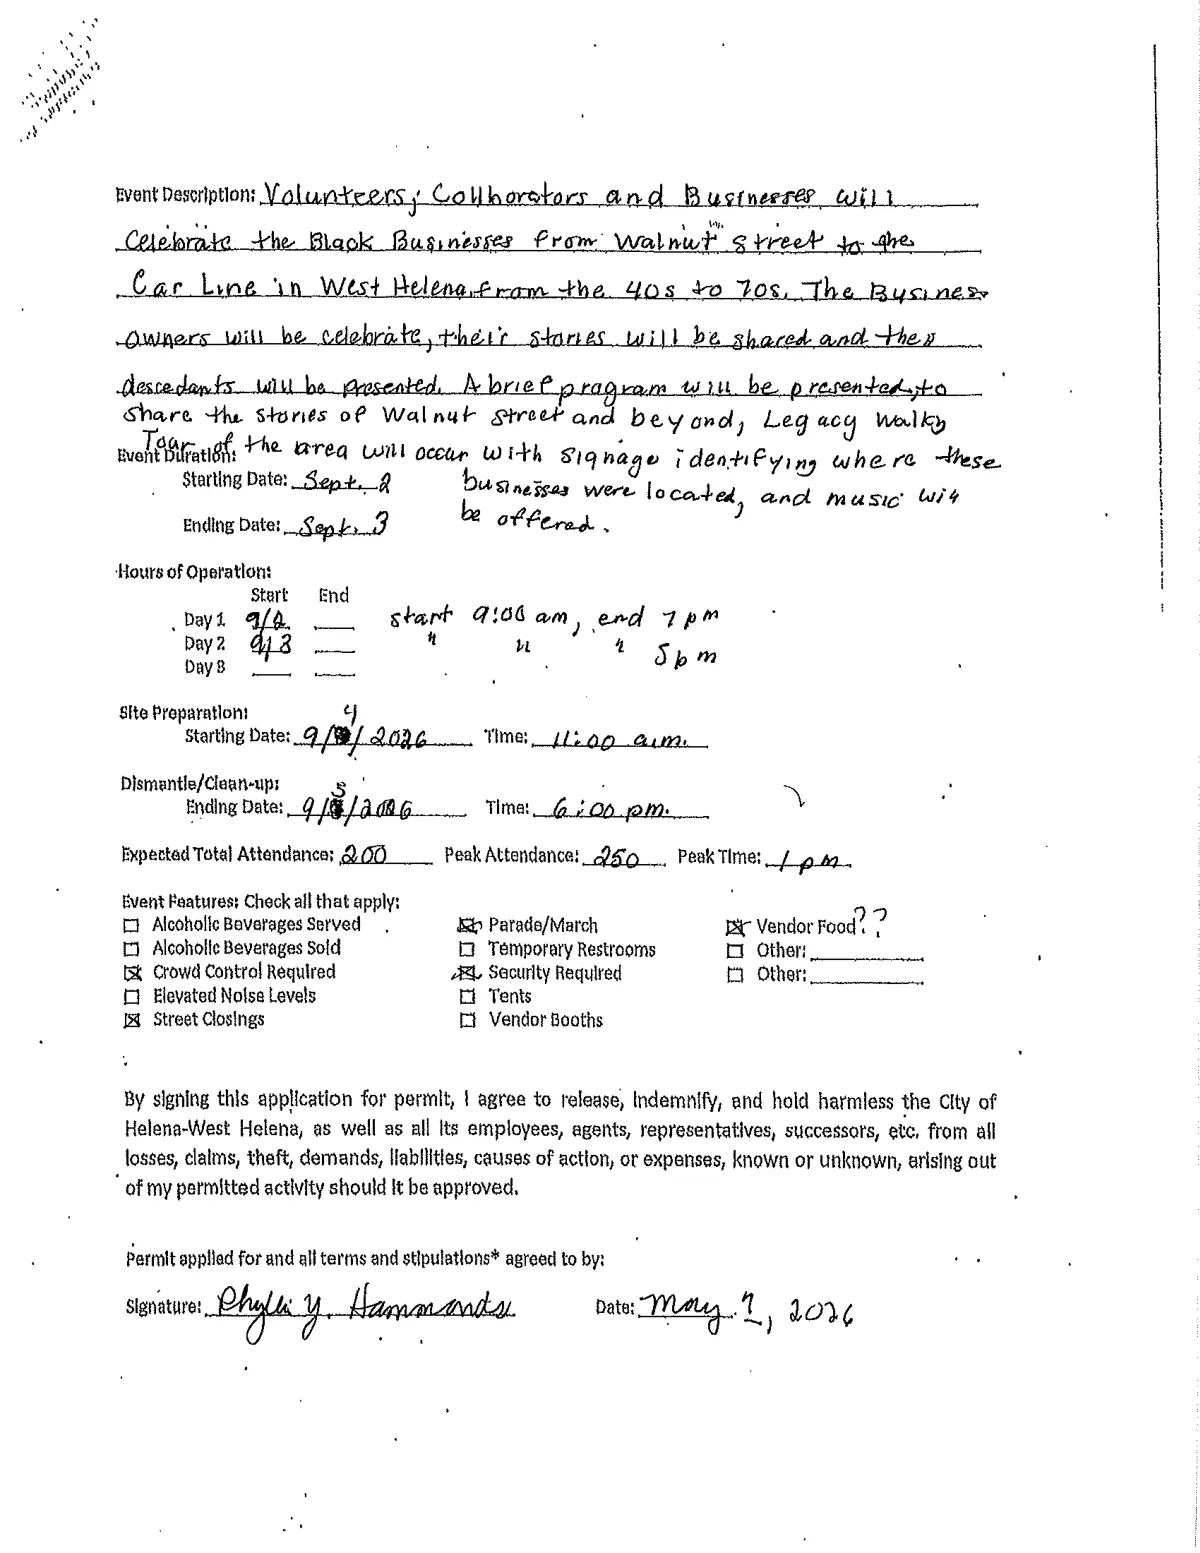 Event Description: Volunteers, Collborators and Businesses will
Celebrate the Black Businesses from Walnut Street to the
Car Line in West Helena, from the 40s to 70s. The Business
owners will be celebrate, their stories will be shared and the
descedants will be presented. A brief program will be presented, to
share the stories of Walnut Street and beyond, Legacy Walky
Tour of the area will occur with signage identifying where these
Event Duration:
Starting Date: Sept. 2 businesses were located, and music will
Ending Date: Sept. 3 be offered.
Hours of Operation:
Start End
Day 1 9/2 start 9:00 am, end 7 pm
Day 2 9/3 " " " 5 pm
Day 3
Site Preparation: 4
Starting Date: 9/ /2026 Time: 11:00 a.m.
Dismantle/Clean-up: 5
Ending Date: 9/ /2026 Time: 6:00 pm.
Expected Total Attendance: 200 Peak Attendance: 250 Peak Time: 1 pm
Event Features: Check all that apply:
☐ Alcoholic Beverages Served ☒ Parade/March ☒ Vendor Food??
☐ Alcoholic Beverages Sold ☐ Temporary Restrooms ☐ Other:
☒ Crowd Control Required ☒ Security Required ☐ Other:
☐ Elevated Noise Levels ☐ Tents
☒ Street Closings ☐ Vendor Booths
By signing this application for permit, I agree to release, indemnify, and hold harmless the City of
Helena-West Helena, as well as all its employees, agents, representatives, successors, etc. from all
losses, claims, theft, demands, liabilities, causes of action, or expenses, known or unknown, arising out
of my permitted activity should it be approved.
Permit applied for and all terms and stipulations* agreed to by:
Signature: Phylli Y. Hammonds Date: May 7, 2026